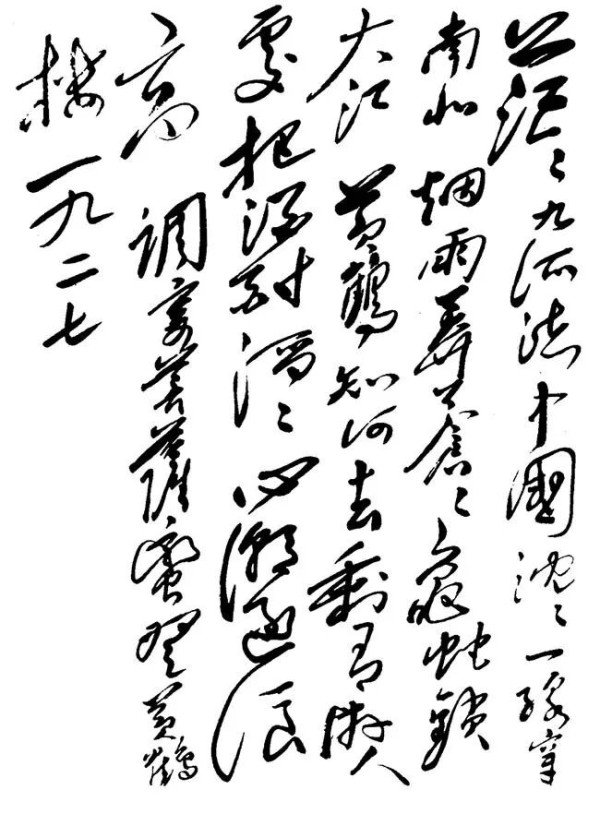 茫〻九派流中國沈〻一線穿
南北烟雨莽蒼〻龜蛇鎖
大江黄鶴知何去剩有遊人
處把酒酎滔〻心潮逐浪
高 調寄菩薩蠻 登黄鶴
樓 一九二七